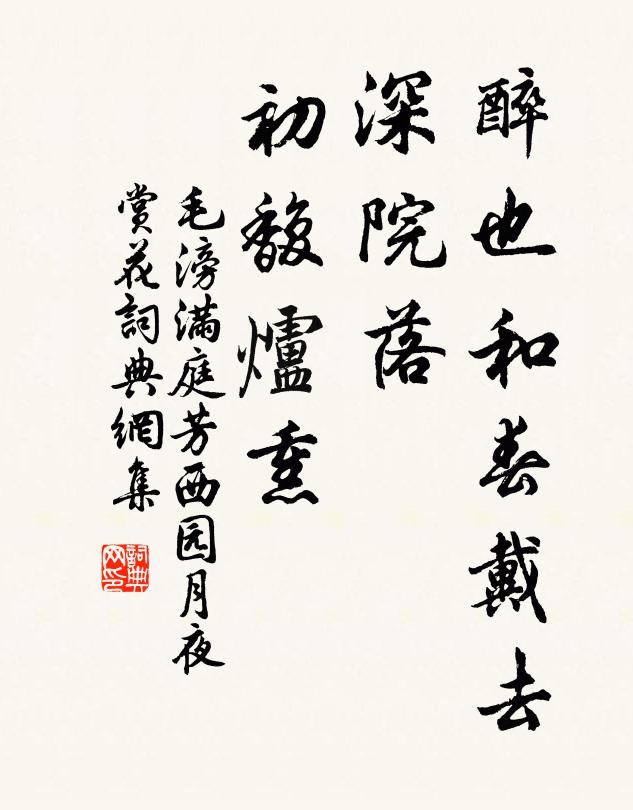 醉也和春戴去
深院落
初馥爐熏
毛滂滿庭芳西园月夜
賞花詞典網集
詞典网印